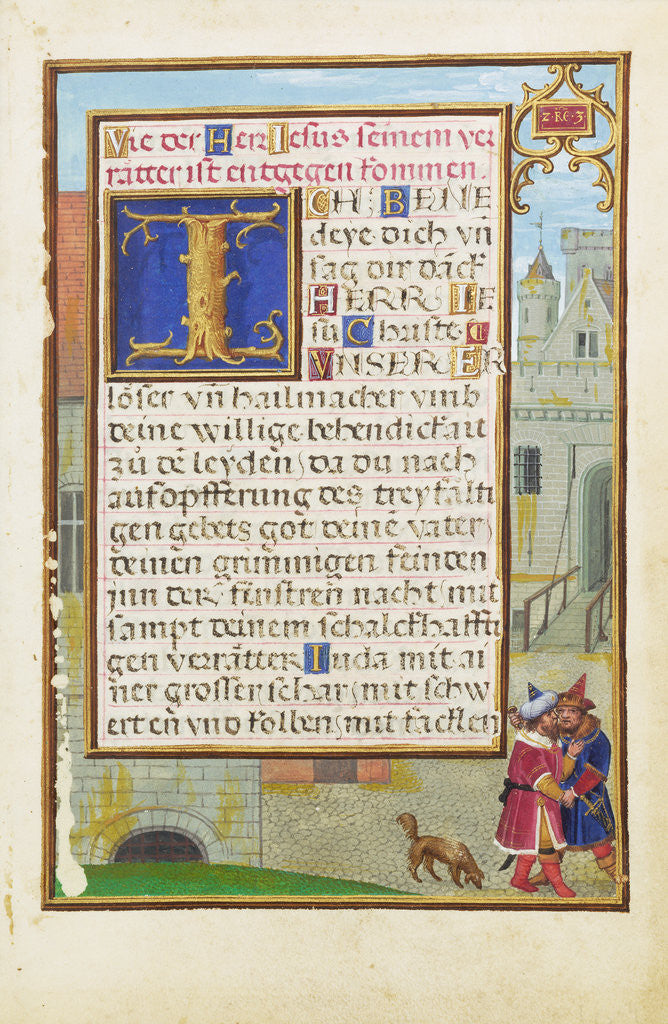 Wie der Herr Jesus seinem ver
rätter ist entgegen kommen.
ICH BENE
deye dich vn̄
sag dir dāck
HERR IE
su Christe
VNSER ER
löser vn̄ hailmacher vmb
deine willige behendickait
zů dē leyden, da du nach
aufopfferung des treyfālti
gen gebets got deinē vater,
deinen grim̄igen feinden
jnn der finstren nacht, mit
sampt deinem schalckhaffti
gen verrätter Iuda mit ai
ner grossen schar, mit schw
ertē vnd kolben, mit facklen